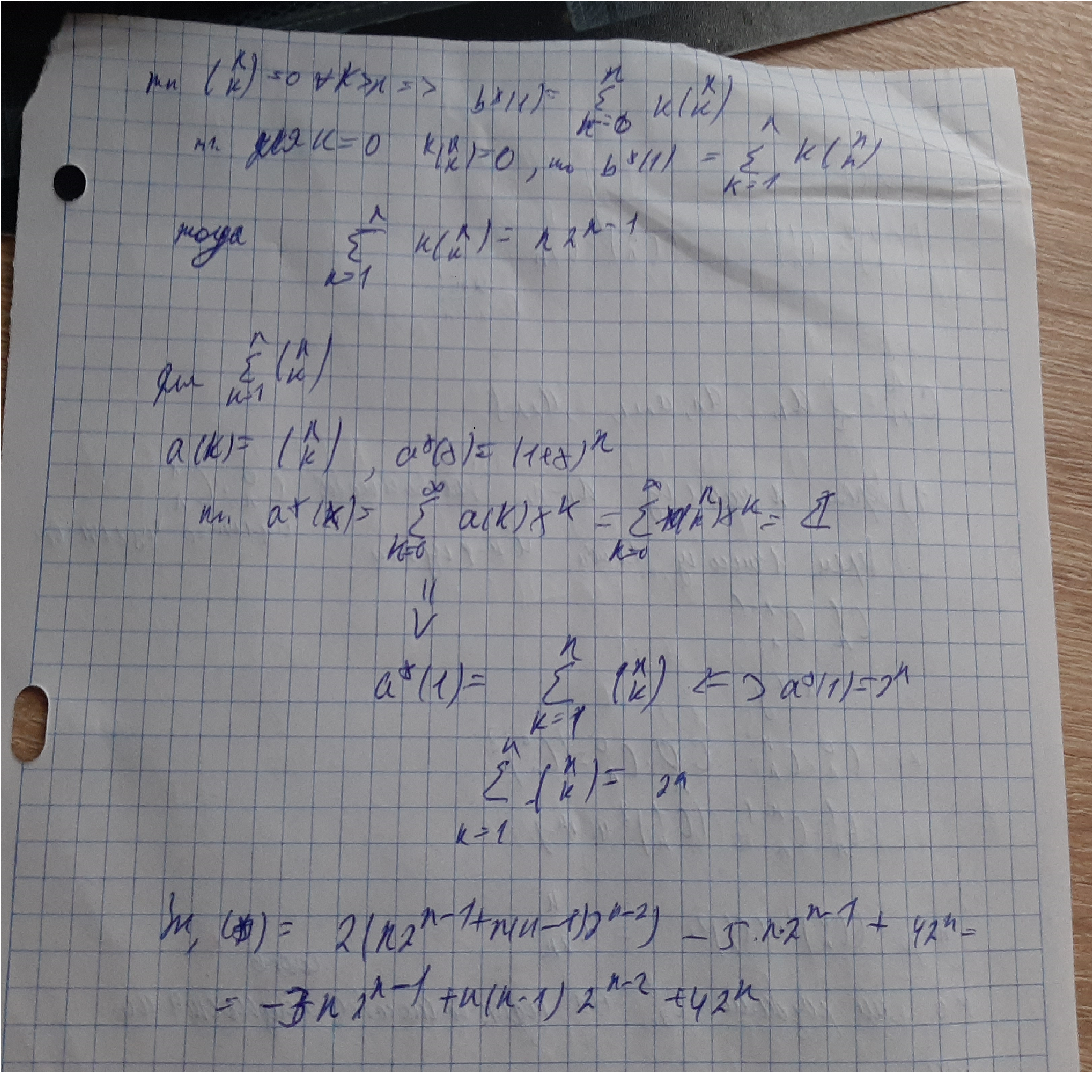 тк (n k) = 0 ∀k>n => b*(1) = Σ_{k=0}^{n} k(n k)
тк для k=0 k(n k)=0, то b*(1) = Σ_{k=1}^{n} k(n k)
тогда Σ_{k=1}^{n} k(n k) = n 2^{n-1}
для Σ_{k=1}^{n} (n k)
a(k) = (n k), a*(x) = (1+x)^n
тк. a*(x) = Σ_{k=0}^{∞} a(k) x^k = Σ_{k=0}^{∞} (n k) x^k =
=>
a*(1) = Σ_{k=1}^{n} (n k) <=> a*(1) = 2^n
Σ_{k=1}^{n} (n k) = 2^n
= 2(n2^{n-1} + n(n-1)2^{n-2}) - 5·n·2^{n-1} + 42^n =
= -3n 2^{n-1} + n(n-1) 2^{n-2} + 42^n